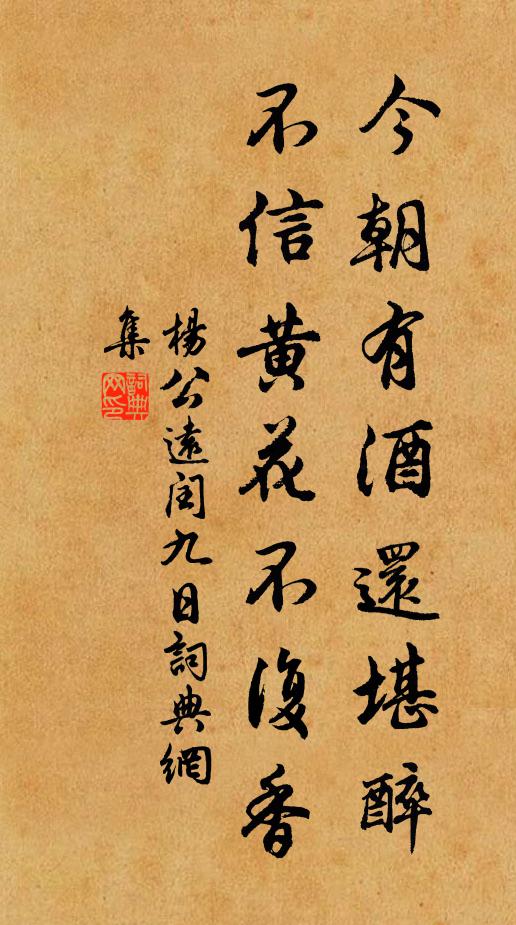 今朝有酒還堪醉
不信黄花不復香
楊公遠閏九日詞典網
集
詞典
网印